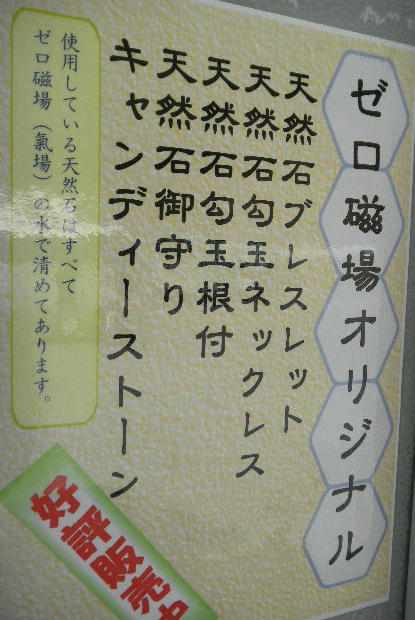 ゼロ磁場オリジナル
天然石ブレスレット
天然石勾玉ネックレス
天然石勾玉根付
天然石御守り
キャンディーストーン
使用している天然石はすべて
ゼロ磁場（氣場）の水で清めてあります。
好評販売中